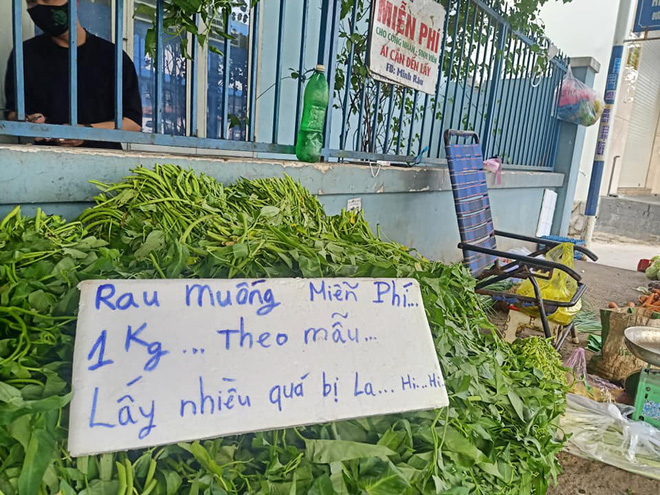 MIỄN PHÍ
CHO CÔNG NHÂN - SINH VIÊN
AI CẦN ĐẾN LẤY
FB: Minh Râu
Rau muống Miễn Phí...
1 Kg... Theo mẫu...
Lấy nhiều quá bị La... Hi...Hi